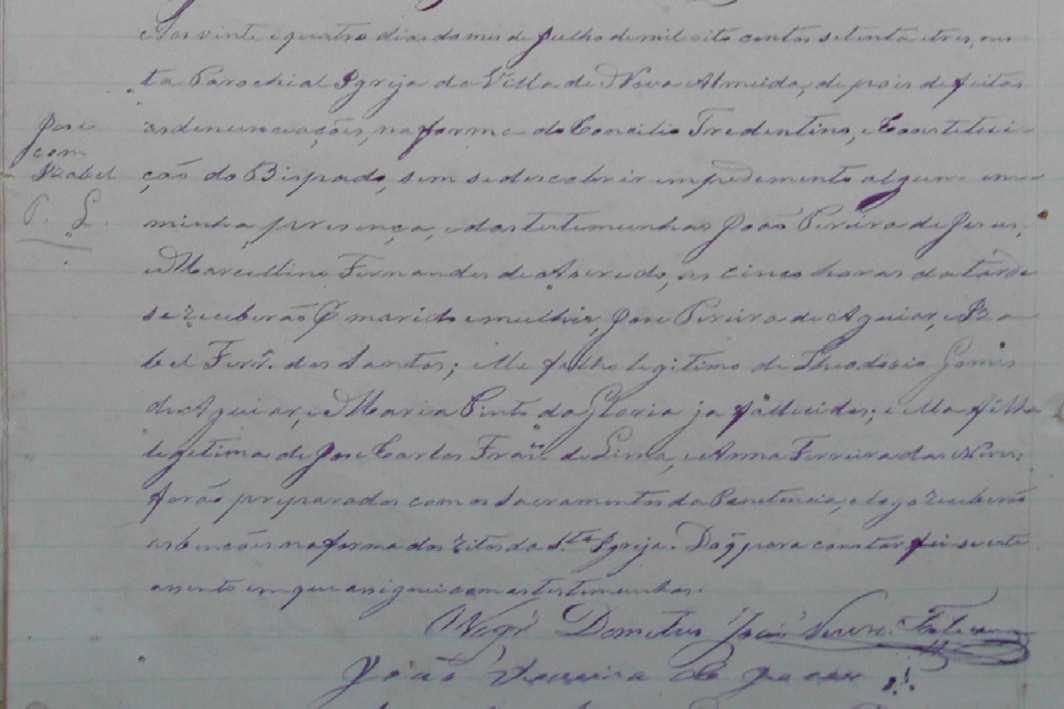 Aos vinte e quatro dias do mes de Julho de mil oito centos setenta e tres, nes-
ta Parochial Igreja da Villa de Nova Almeida, de pois de feitas
as denunciações, na forma do Concilio Tredentino, e Constitui-
ção do Bispado, sem se descobrir impedemento algum em
minha presença, e das testemunhas João Pereira de Jesus,
e Marcellino Fernandes de Aseredo, as cinco horas da tarde
se receberão Ꝑ marido e mulher, Jose Pereira de Aguiar, e Iza-
bel Ferrª. dos Santos; elle filho legitimo de Theodosio Gomes
de Aguiar, e Maria Pinto da Gloria ja fallecidos; e ella filha
legetima de Jose Carlos Frañ. de Lima, e Anna Ferreira das Neves;
forão preparados com os Sacramentos da Penitencia, e logo receberão
as bencões na forma dos ritos da S.ta Igreja. Do q̃ para constar fiz este
assento em que assignei com as testemunhas.
Jose
com
Izabel
P. L.
O Vigrº Dometrio João
João Pereira de Jesus